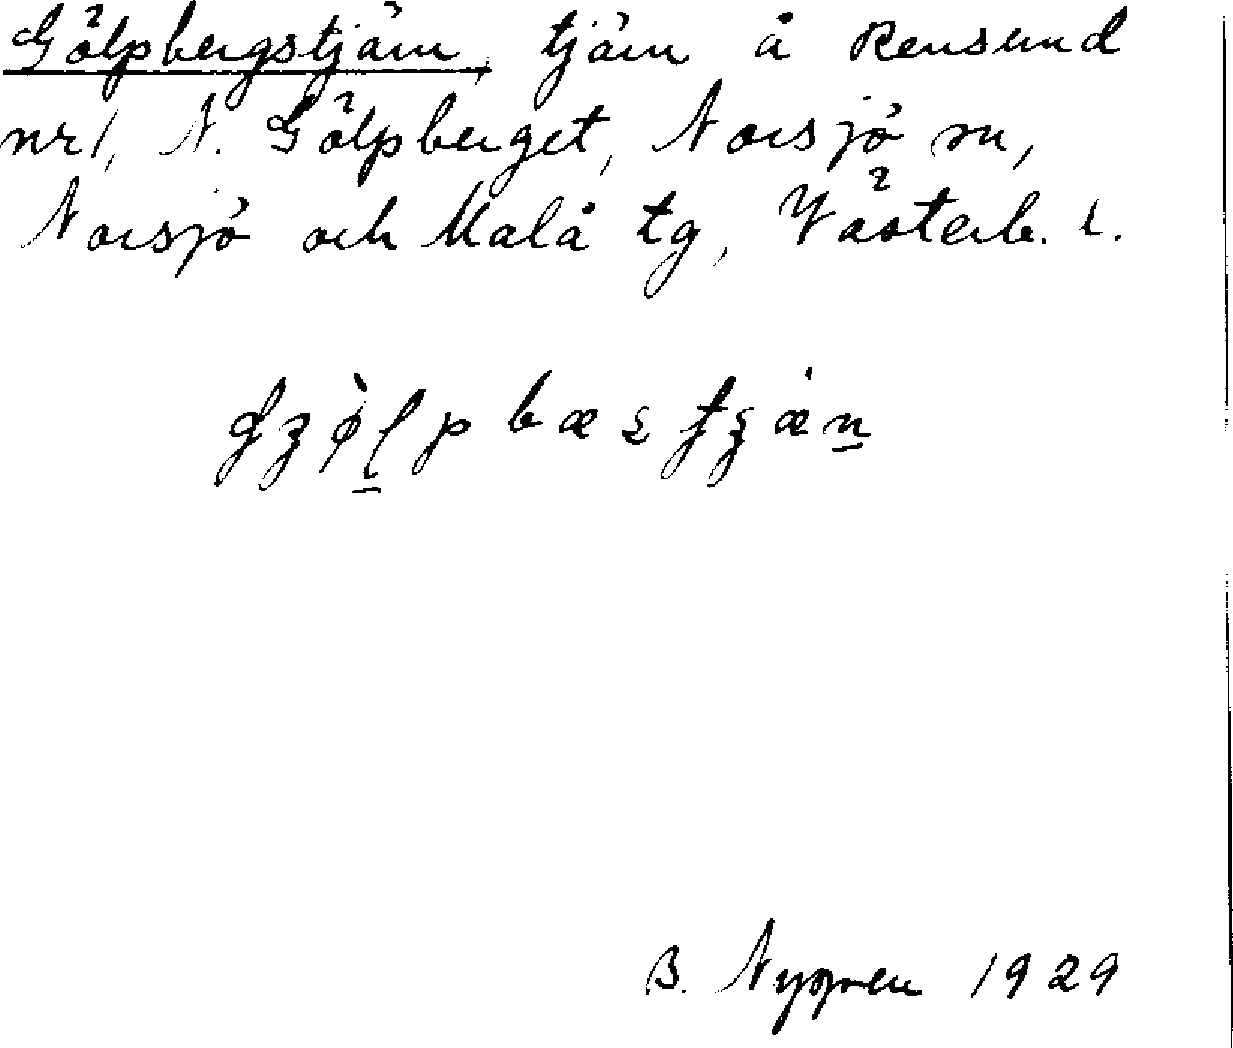 Gölpbergstjärn, tjärn å Rensund
nr 1, N. Gölpberget, Norsjö sn,
Norsjö och Malå tg, Västerb. l.
B. Nygren 1929